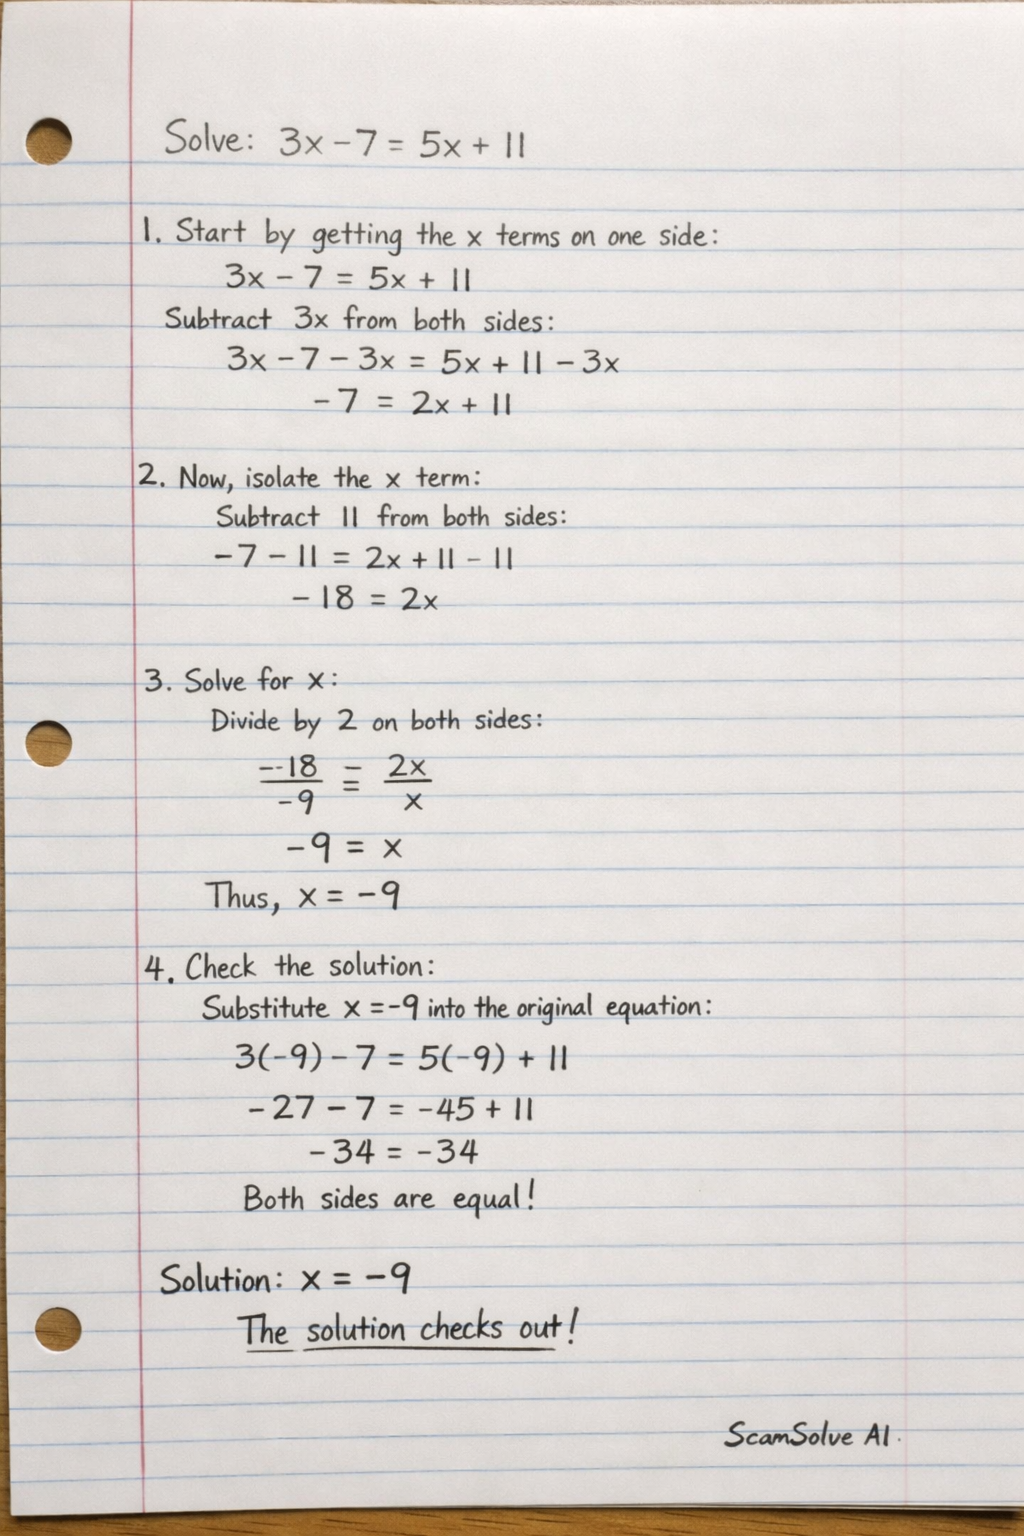 Solve: 3x - 7 = 5x + 11
1. Start by getting the x terms on one side:
3x - 7 = 5x + 11
Subtract 3x from both sides:
3x - 7 - 3x = 5x + 11 - 3x
-7 = 2x + 11
2. Now, isolate the x term:
Subtract 11 from both sides:
-7 - 11 = 2x + 11 - 11
-18 = 2x
3. Solve for x:
Divide by 2 on both sides:
--18 = 2x
-9 x
-9 = x
Thus, x = -9
4. Check the solution:
Substitute x = -9 into the original equation:
3(-9) - 7 = 5(-9) + 11
-27 - 7 = -45 + 11
-34 = -34
Both sides are equal!
Solution: x = -9
The solution checks out!
ScamSolve AI.